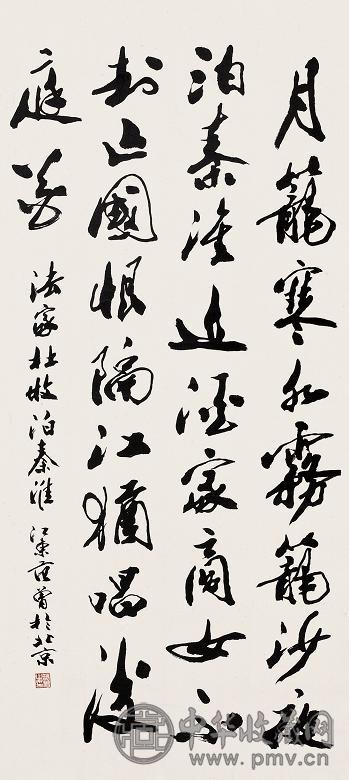 月籠寒水霧籠沙夜
泊秦淮近酒家商女不
知亡國恨隔江猶唱後
庭花
法家杜牧泊秦淮 江東范曾於北京
中华收藏网
www.pmv.cn